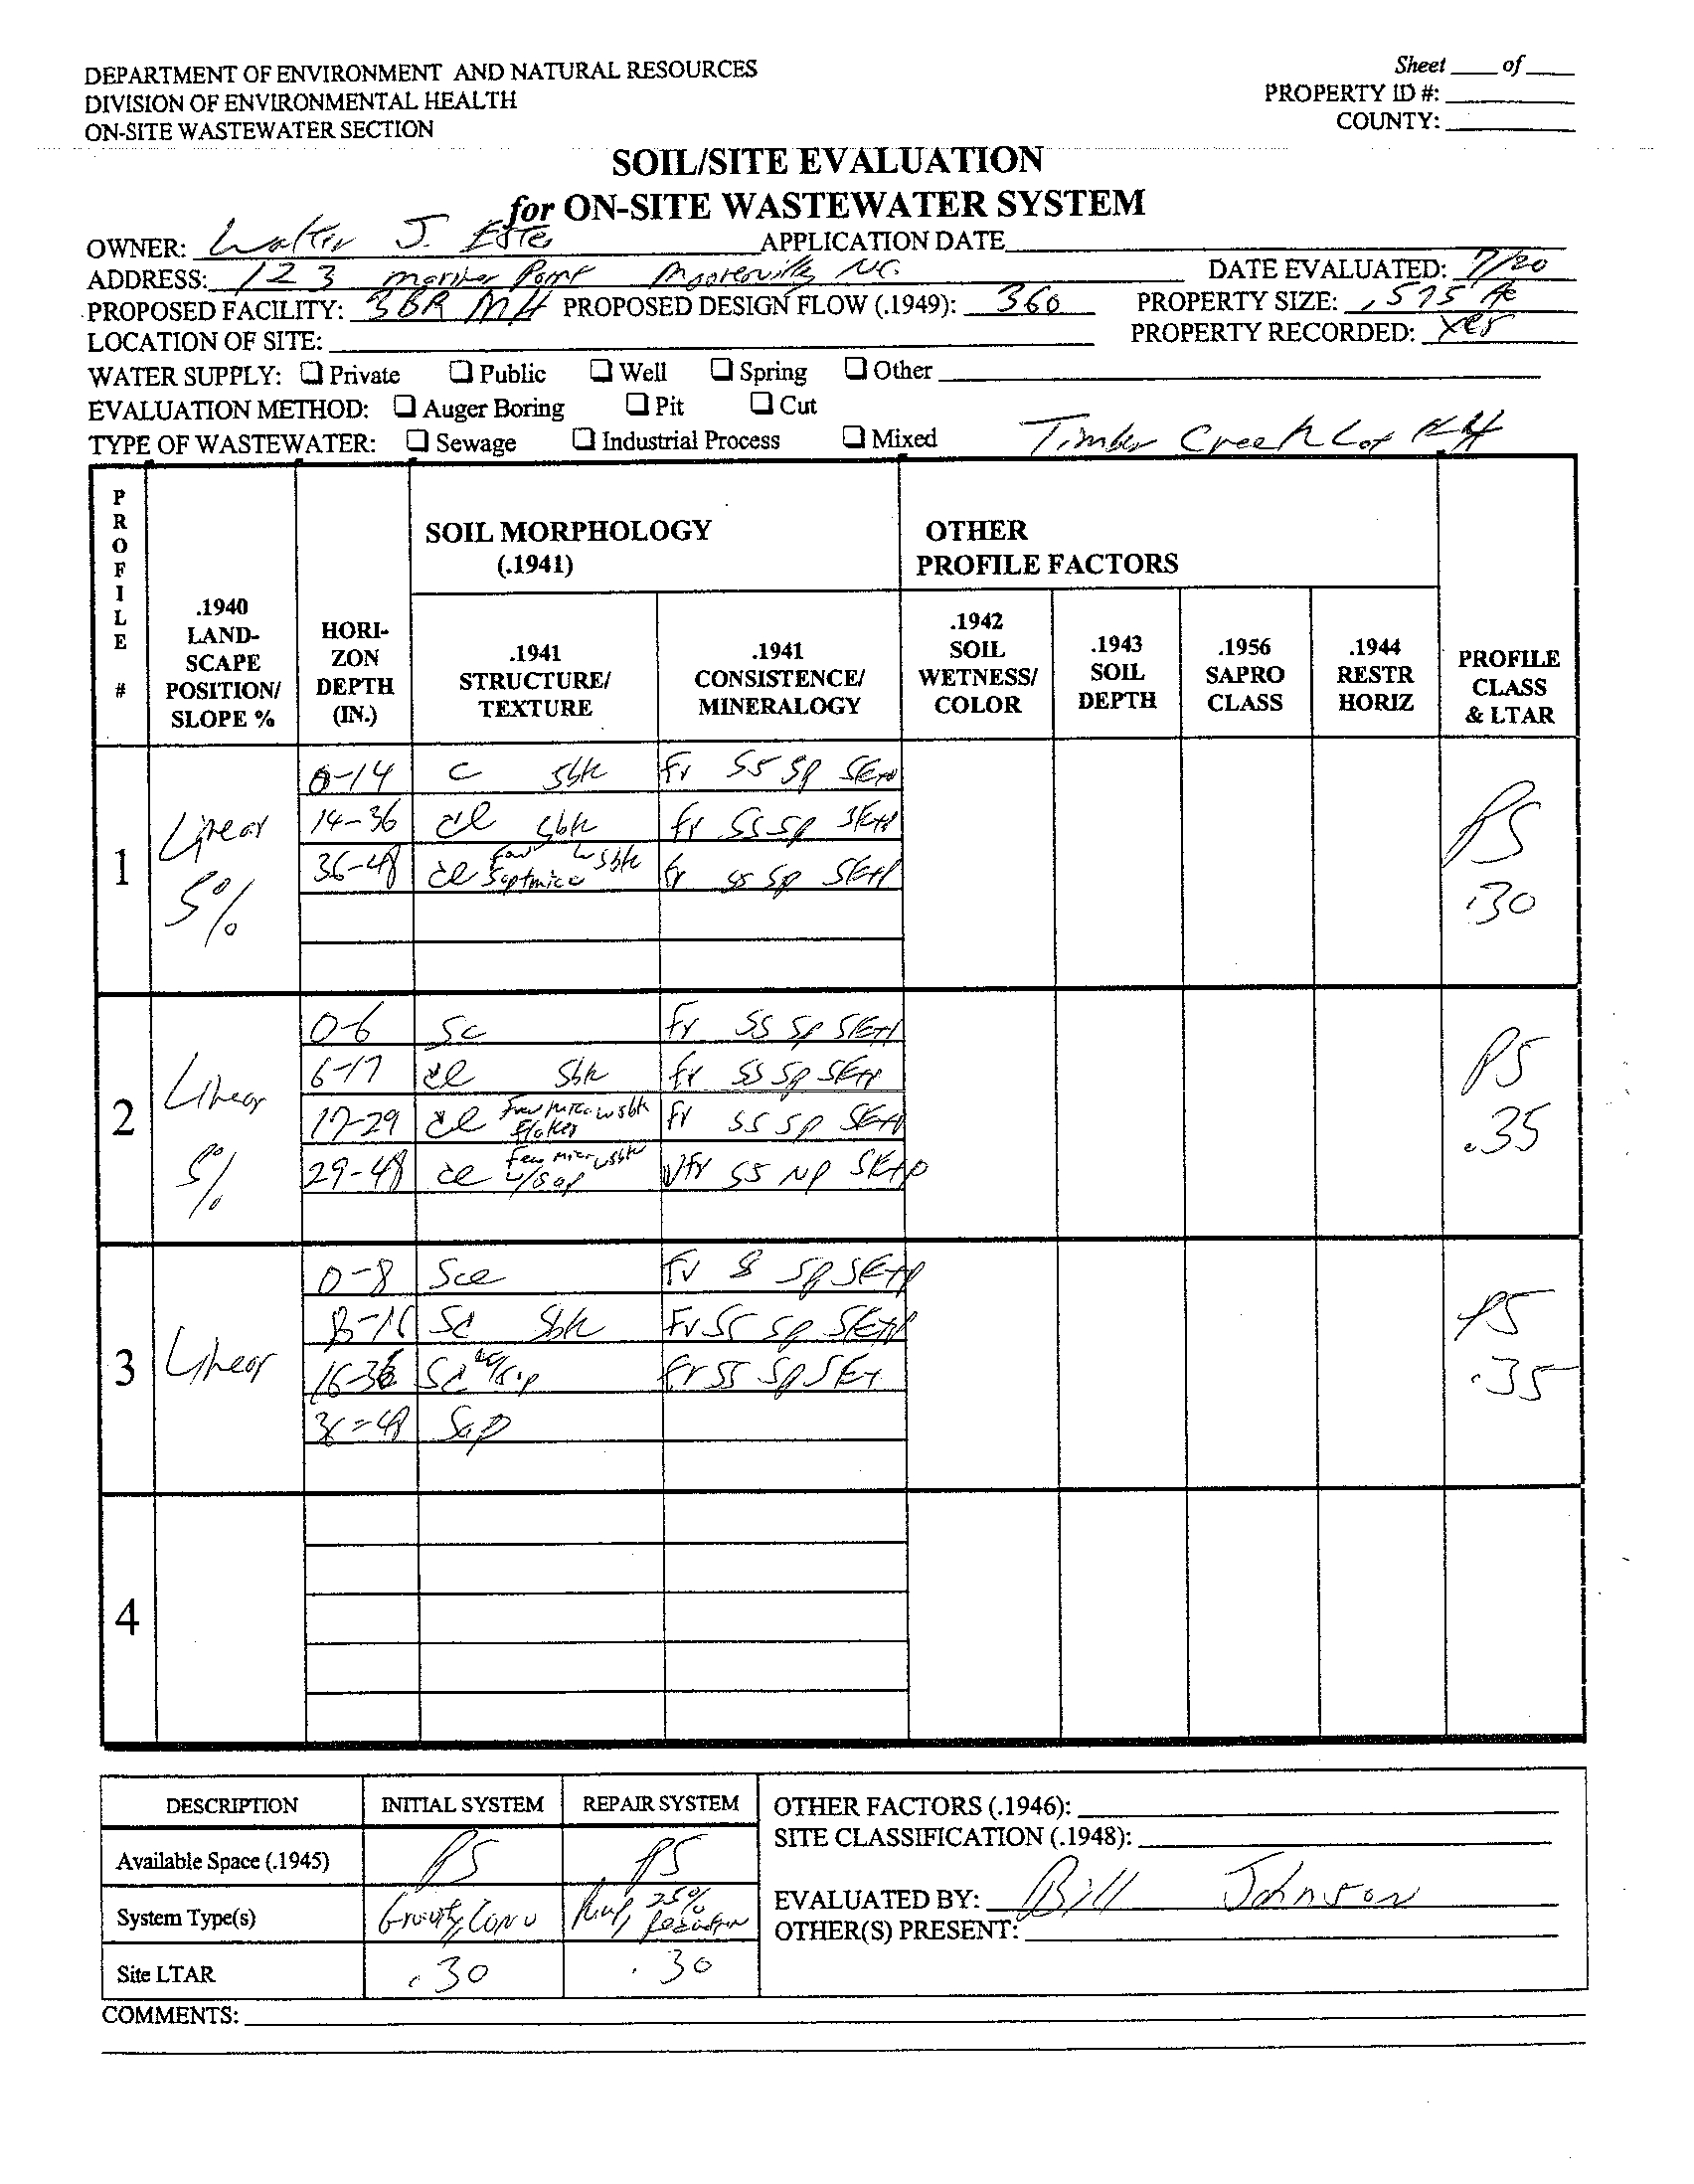 DEPARTMENT OF ENVIRONMENT AND NATURAL RESOURCES
DIVISION OF ENVIRONMENTAL HEALTH
ON-SITE WASTEWATER SECTION
Sheet ____ of ____
PROPERTY ID #:
COUNTY:
SOIL/SITE EVALUATION
for ON-SITE WASTEWATER SYSTEM
OWNER: Walter J. APPLICATION DATE
ADDRESS: 123 Mariner Point Mooresville NC. DATE EVALUATED: 7/20
PROPOSED FACILITY: 3BR MH PROPOSED DESIGN FLOW (.1949): 360 PROPERTY SIZE: .575 Ac
LOCATION OF SITE: PROPERTY RECORDED: Yes
WATER SUPPLY: ❑ Private ❑ Public ❑ Well ❑ Spring ❑ Other
EVALUATION METHOD: ❑ Auger Boring ❑ Pit ❑ Cut
TYPE OF WASTEWATER: ❑ Sewage ❑ Industrial Process ❑ Mixed Timber Creek Lot
PROFILE #
.1940 LAND-SCAPE POSITION/ SLOPE %
HORI-ZON DEPTH (IN.)
SOIL MORPHOLOGY (.1941)
OTHER PROFILE FACTORS
.1941 STRUCTURE/ TEXTURE
.1941 CONSISTENCE/ MINERALOGY
.1942 SOIL WETNESS/ COLOR
.1943 SOIL DEPTH
.1956 SAPRO CLASS
.1944 RESTR HORIZ
PROFILE CLASS & LTAR
1 Linear 5% PS .30
0-14 c sbk Fr SS SP SEXP
14-36 cl sbk Fr SS SP SEXP
36-48 cl wsbk Fr SS SP SEXP
2 Linear 5% PS .35
0-6 Sc Fr SS SP SEXP
6-17 cl Sbk Fr SS SP SEXP
17-29 cl Few mica wsbk flakes Fr SS SP SEXP
29-48 cl Few mica wsbk w/sap Vfr SS NP SEXP
3 Linear PS .35
0-8 Scl Fr SP SEXP
8-16 Sbk Fr SS SP SEXP
16-36 Fr SS SP SEX
36-48 Sap
4
DESCRIPTION INITIAL SYSTEM REPAIR SYSTEM
Available Space (.1945) PS PS
System Type(s) Gravity, Conv Pump, 25% Reduction
Site LTAR .30 .30
OTHER FACTORS (.1946):
SITE CLASSIFICATION (.1948):
EVALUATED BY: Bill Johnson
OTHER(S) PRESENT:
COMMENTS: